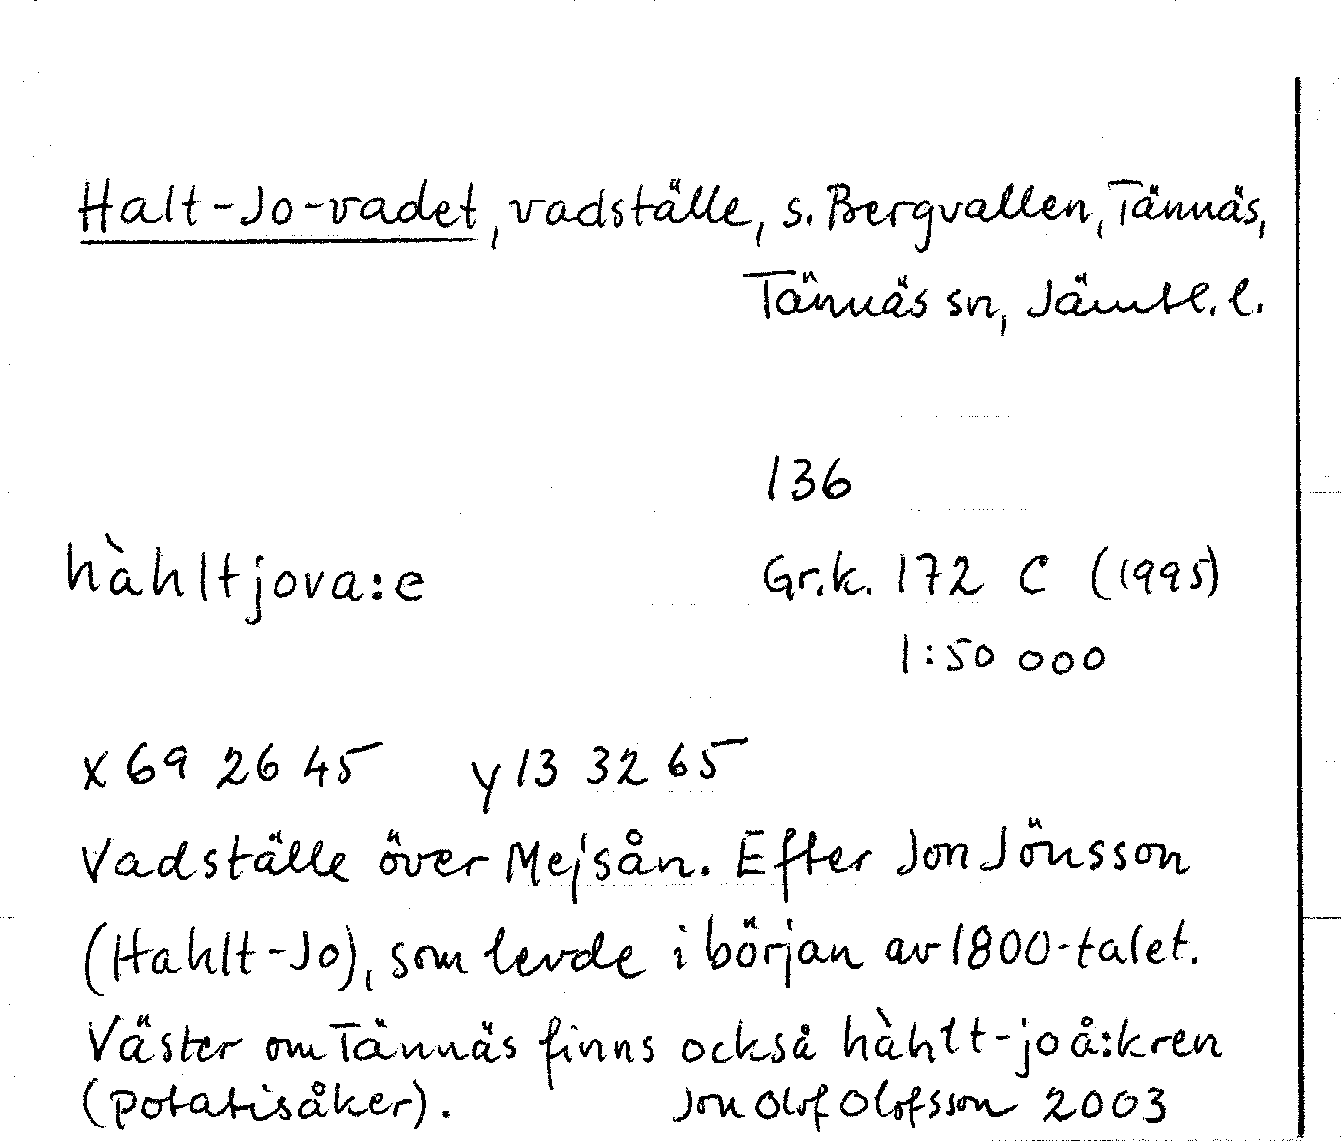 Halt-Jo-vadet, vadställe, s. Bergvallen, Tännäs,
Tännäs sn, Jämtl. l.
136
hàhltjova:e Gr.k. 172 C (1995)
1:50 000
x 69 26 45 y 13 32 65
Vadställe över Mejsån. Efter Jon Jönsson
(Hahlt-Jo), som levde i början av 1800-talet.
Väster om Tännäs finns också hàhlt-joå:kren
(potatisåker). Jon Olof Olofsson 2003